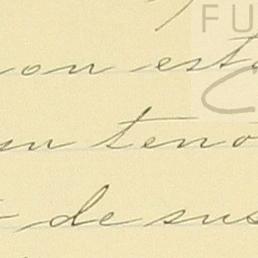 FU
on est
un teno
de sus